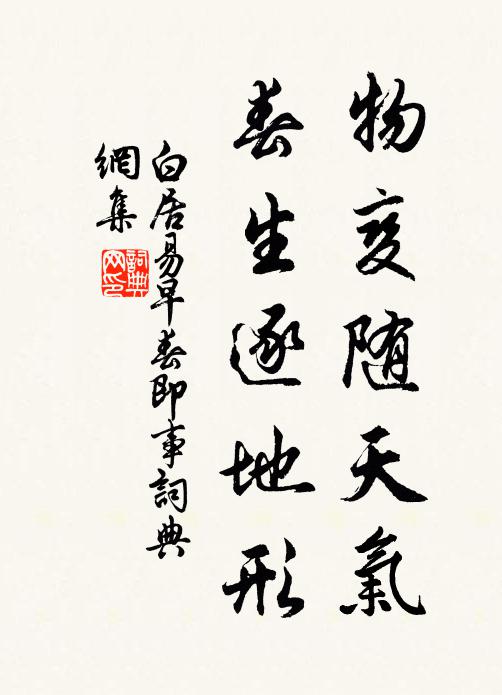 物变随天氣
春生逐地形
白居易早春即事詞典
網集
詞典
网印